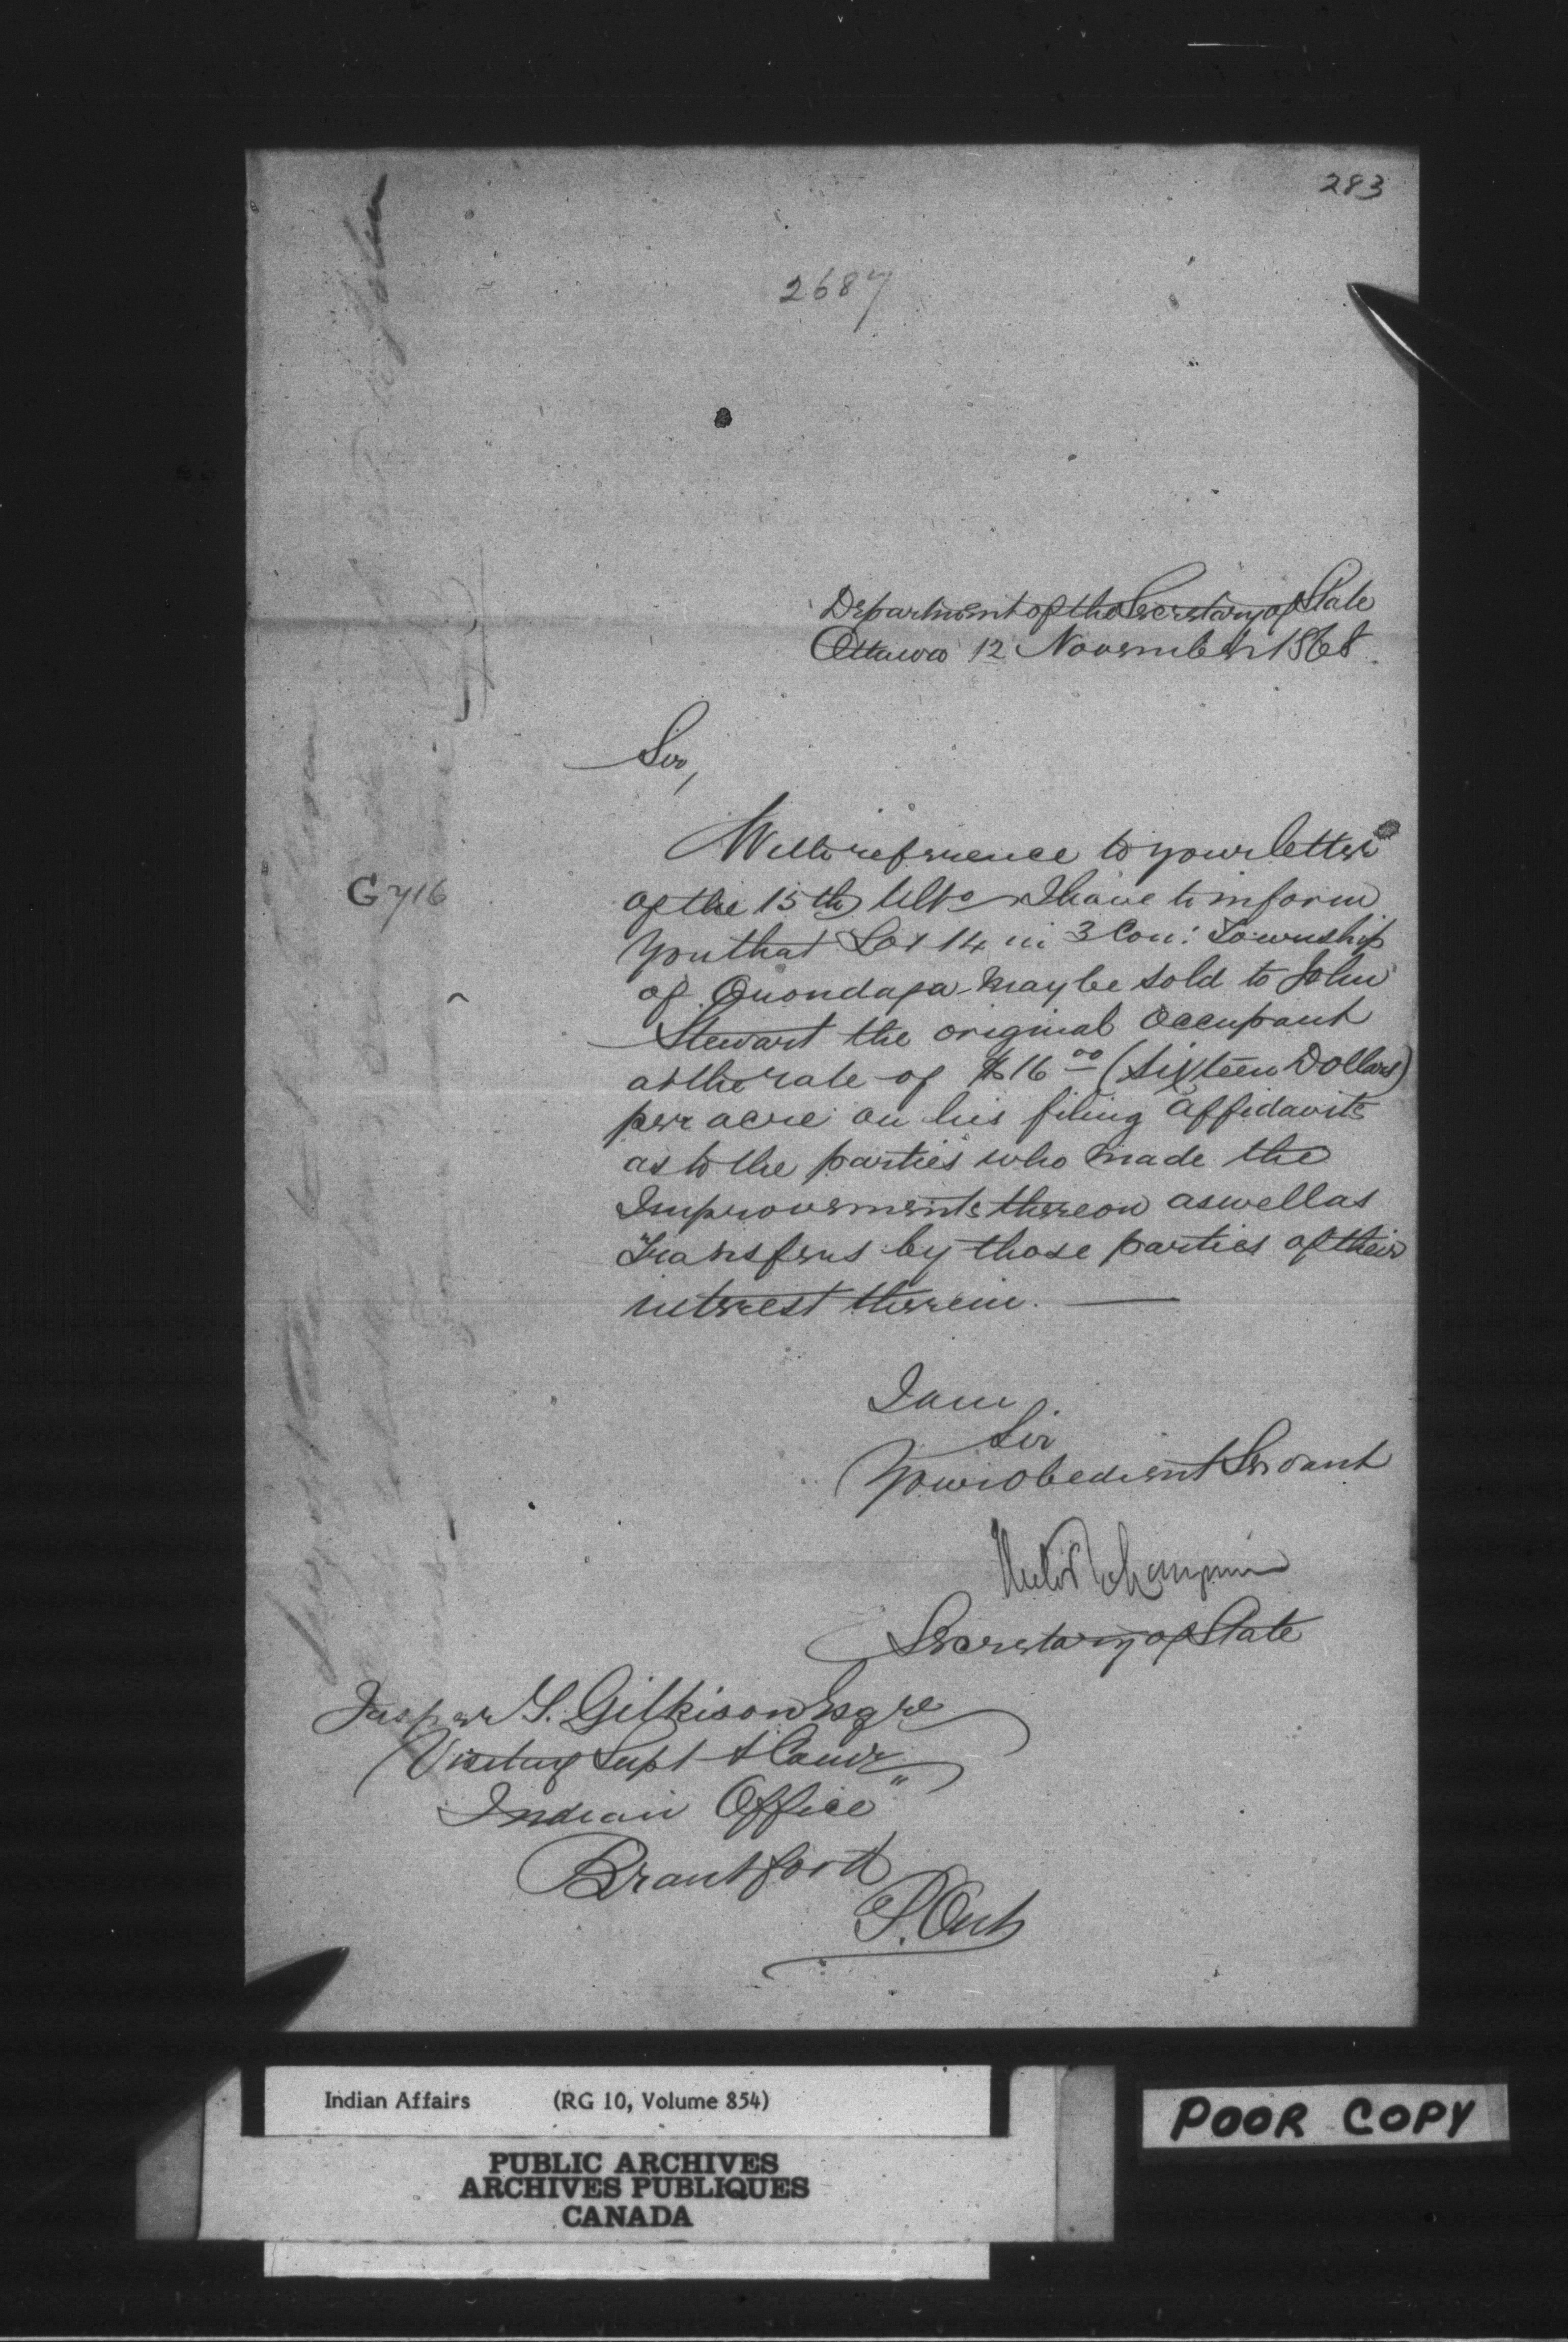 283
2687
Department of the Secretary of State
Ottawa 12 November 1868
Sir,
With reference to your letter
of the 15th Ulto I have to inform
G 716
you that Lot 14 in 3 Con: Township
of Onondaga may be sold to John
Stewart the original Occupant
at the rate of $16 00 (Sixteen Dollars)
per acre on his filing affidavits
as to the parties who made the
Improvements thereon as well as
Transfers by those parties of their
interest therein.
I am
Sir
Your obedient Servant
Secretary of State
Jasper T. Gilkison Esqre
Visiting Supt & Comr
Indian Office
Brantford
P. Ont
Indian Affairs (RG 10, Volume 854)
PUBLIC ARCHIVES
ARCHIVES PUBLIQUES
CANADA
POOR COPY